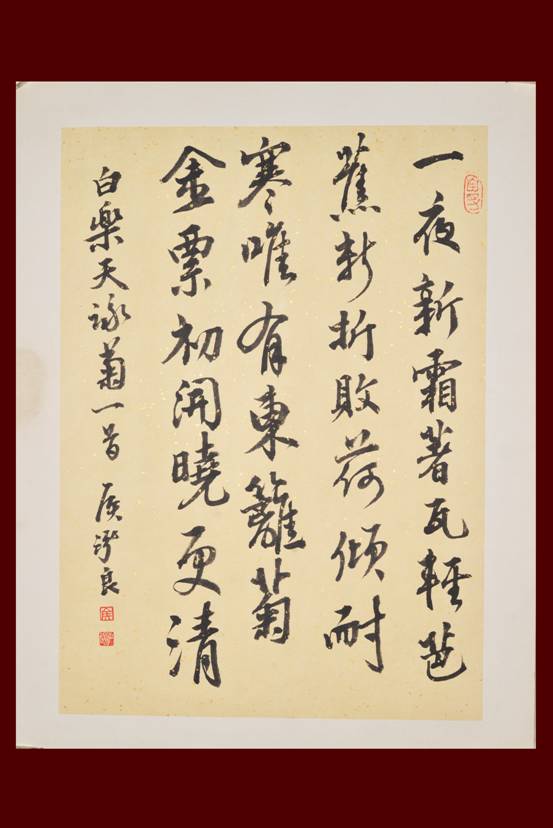 一夜新霜著瓦輕芭
蕉新折敗荷傾耐
寒唯有東籬菊
金粟初開曉更清
白樂天詠菊一首 侯良